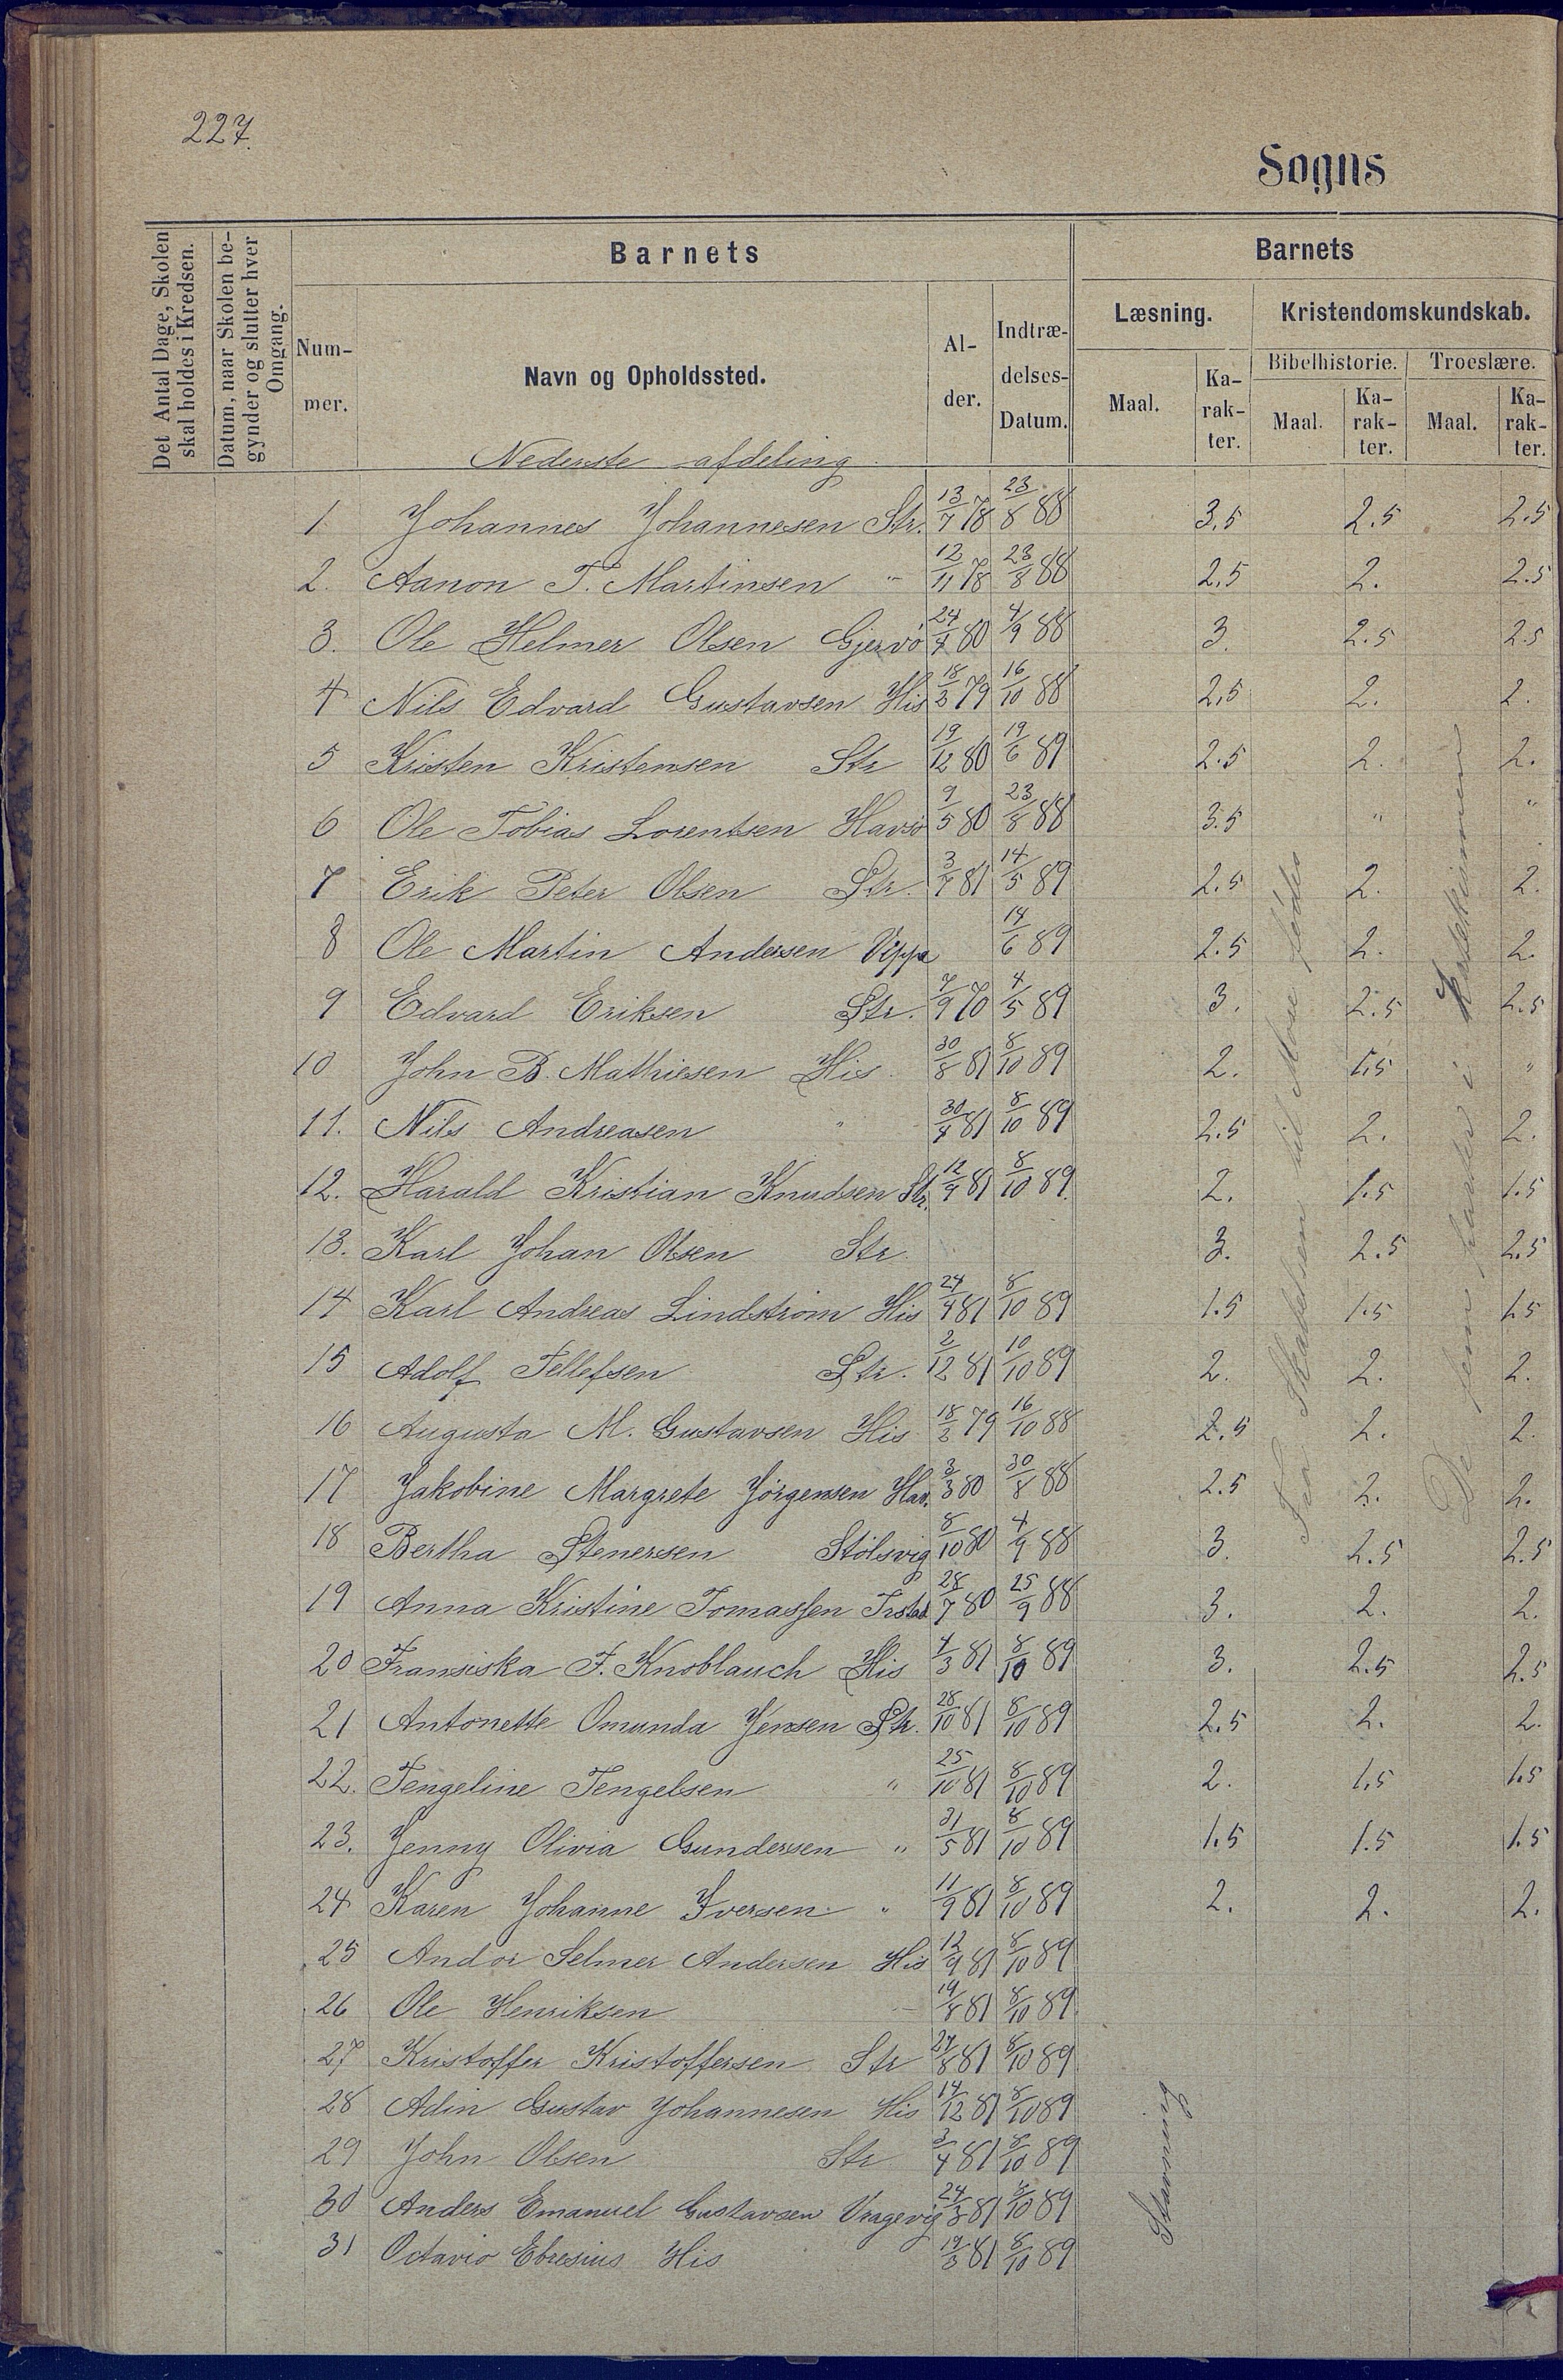 227.
Sogns
Det Antal Dage, Skolen skal holdes i Kredsen.
Datum, naar Skolen begynder og slutter hver Omgang.
Barnets
Barnets
Nummer.
Navn og Opholdssted.
Alder.
Indtrædelses-Datum.
Læsning.
Kristendomskundskab.
Bibelhistorie.
Troeslære.
Maal.
Karakter.
Maal.
Karakter.
Maal.
Karakter.
Nederste afdeling
1 Johannes Johannesen Str. 13/7 78 23/8 88 3,5 2.5 2.5
2. Aanon T. Martinsen " 12/11 78 23/8 88 2,5 2. 2.5
3. Ole Helmer Olsen Gjervø 24/4 80 4/9 88 3. 2.5 2.5
4 Nils Edvard Gustavsen His 18/3 79 16/10 88 2,5 2. 2.
5 Kristen Kristensen Str 19/12 80 19/6 89 2.5 2. 2.
6 Ole Tobias Lorentsen Havsø 9/5 80 23/8 88 3.5 " "
7 Erik Peter Olsen Str. 3/4 81 14/5 89 2.5 2. 2.
8 Ole Martin Andersen Vippa 14/6 89 2.5 2. 2.
9 Edvard Eriksen Str. 7/9 70 4/5 89 3. 2.5 2.5
10 John B. Mathiesen His. 30/8 81 8/10 89 2. 1.5 "
11. Nils Andreasen " 30/4 81 8/10 89 2.5 2. 2.
12. Harald Kristian Knudsen Str. 12/9 81 8/10 89. 2. 1.5 1.5
13. Karl Johan Olsen Str. 3. 2.5 2.5
14 Karl Andreas Lindstrøm His 24/9 81 8/10 89 1.5 1.5 1.5
15 Adolf Tellefsen Str. 2/12 81 10/10 89 2. 2. 2.
16 Augusta M. Gustavsen His 18/3 79 16/10 88 2.5 2. 2.
17 Jakobine Margrete Jørgensen Hav. 3/3 80 30/8 88 2.5 2. 2.
18 Bertha Stenersen Stølsvig 8/10 80 4/9 88 3. 2.5 2.5
19 Anna Kristine Tomassen 28/7 80 25/9 88 3. 2. 2.
20 Fransiska F. Knoblauch His 4/3 81 8/10 89 3. 2.5 2.5
21 Antonette Omunda Jensen Str. 28/10 81 8/10 89 2.5 2. 2.
22. Tengeline Tengelsen " 25/10 81 8/10 89 2. 1.5 1.5
23. Jenny Olivia Gundersen " 31/5 81 8/10 89 1.5 1.5 1.5
24 Karen Johanne Iversen " 11/9 81 8/10 89 2. 2. 2.
25 Andor Selmer Andersen His 12/9 81 8/10 89
26 Ole Henriksen " 19/8 81 8/10 89
27 Kristoffer Kristoffersen Str 27/8 81 8/10 89
28 Adin Gustav Johannesen His 14/12 81 8/10 89
29 John Olsen Str 3/4 81 8/10 89
30 Anders Emanuel Gustavsen Vragevig 24/3 81 8/10 89
31 Octavio Ebresius His 19/3 81 8/10 89
Fra Skabelsen til Mose fødes
De fem parter i
Stavning